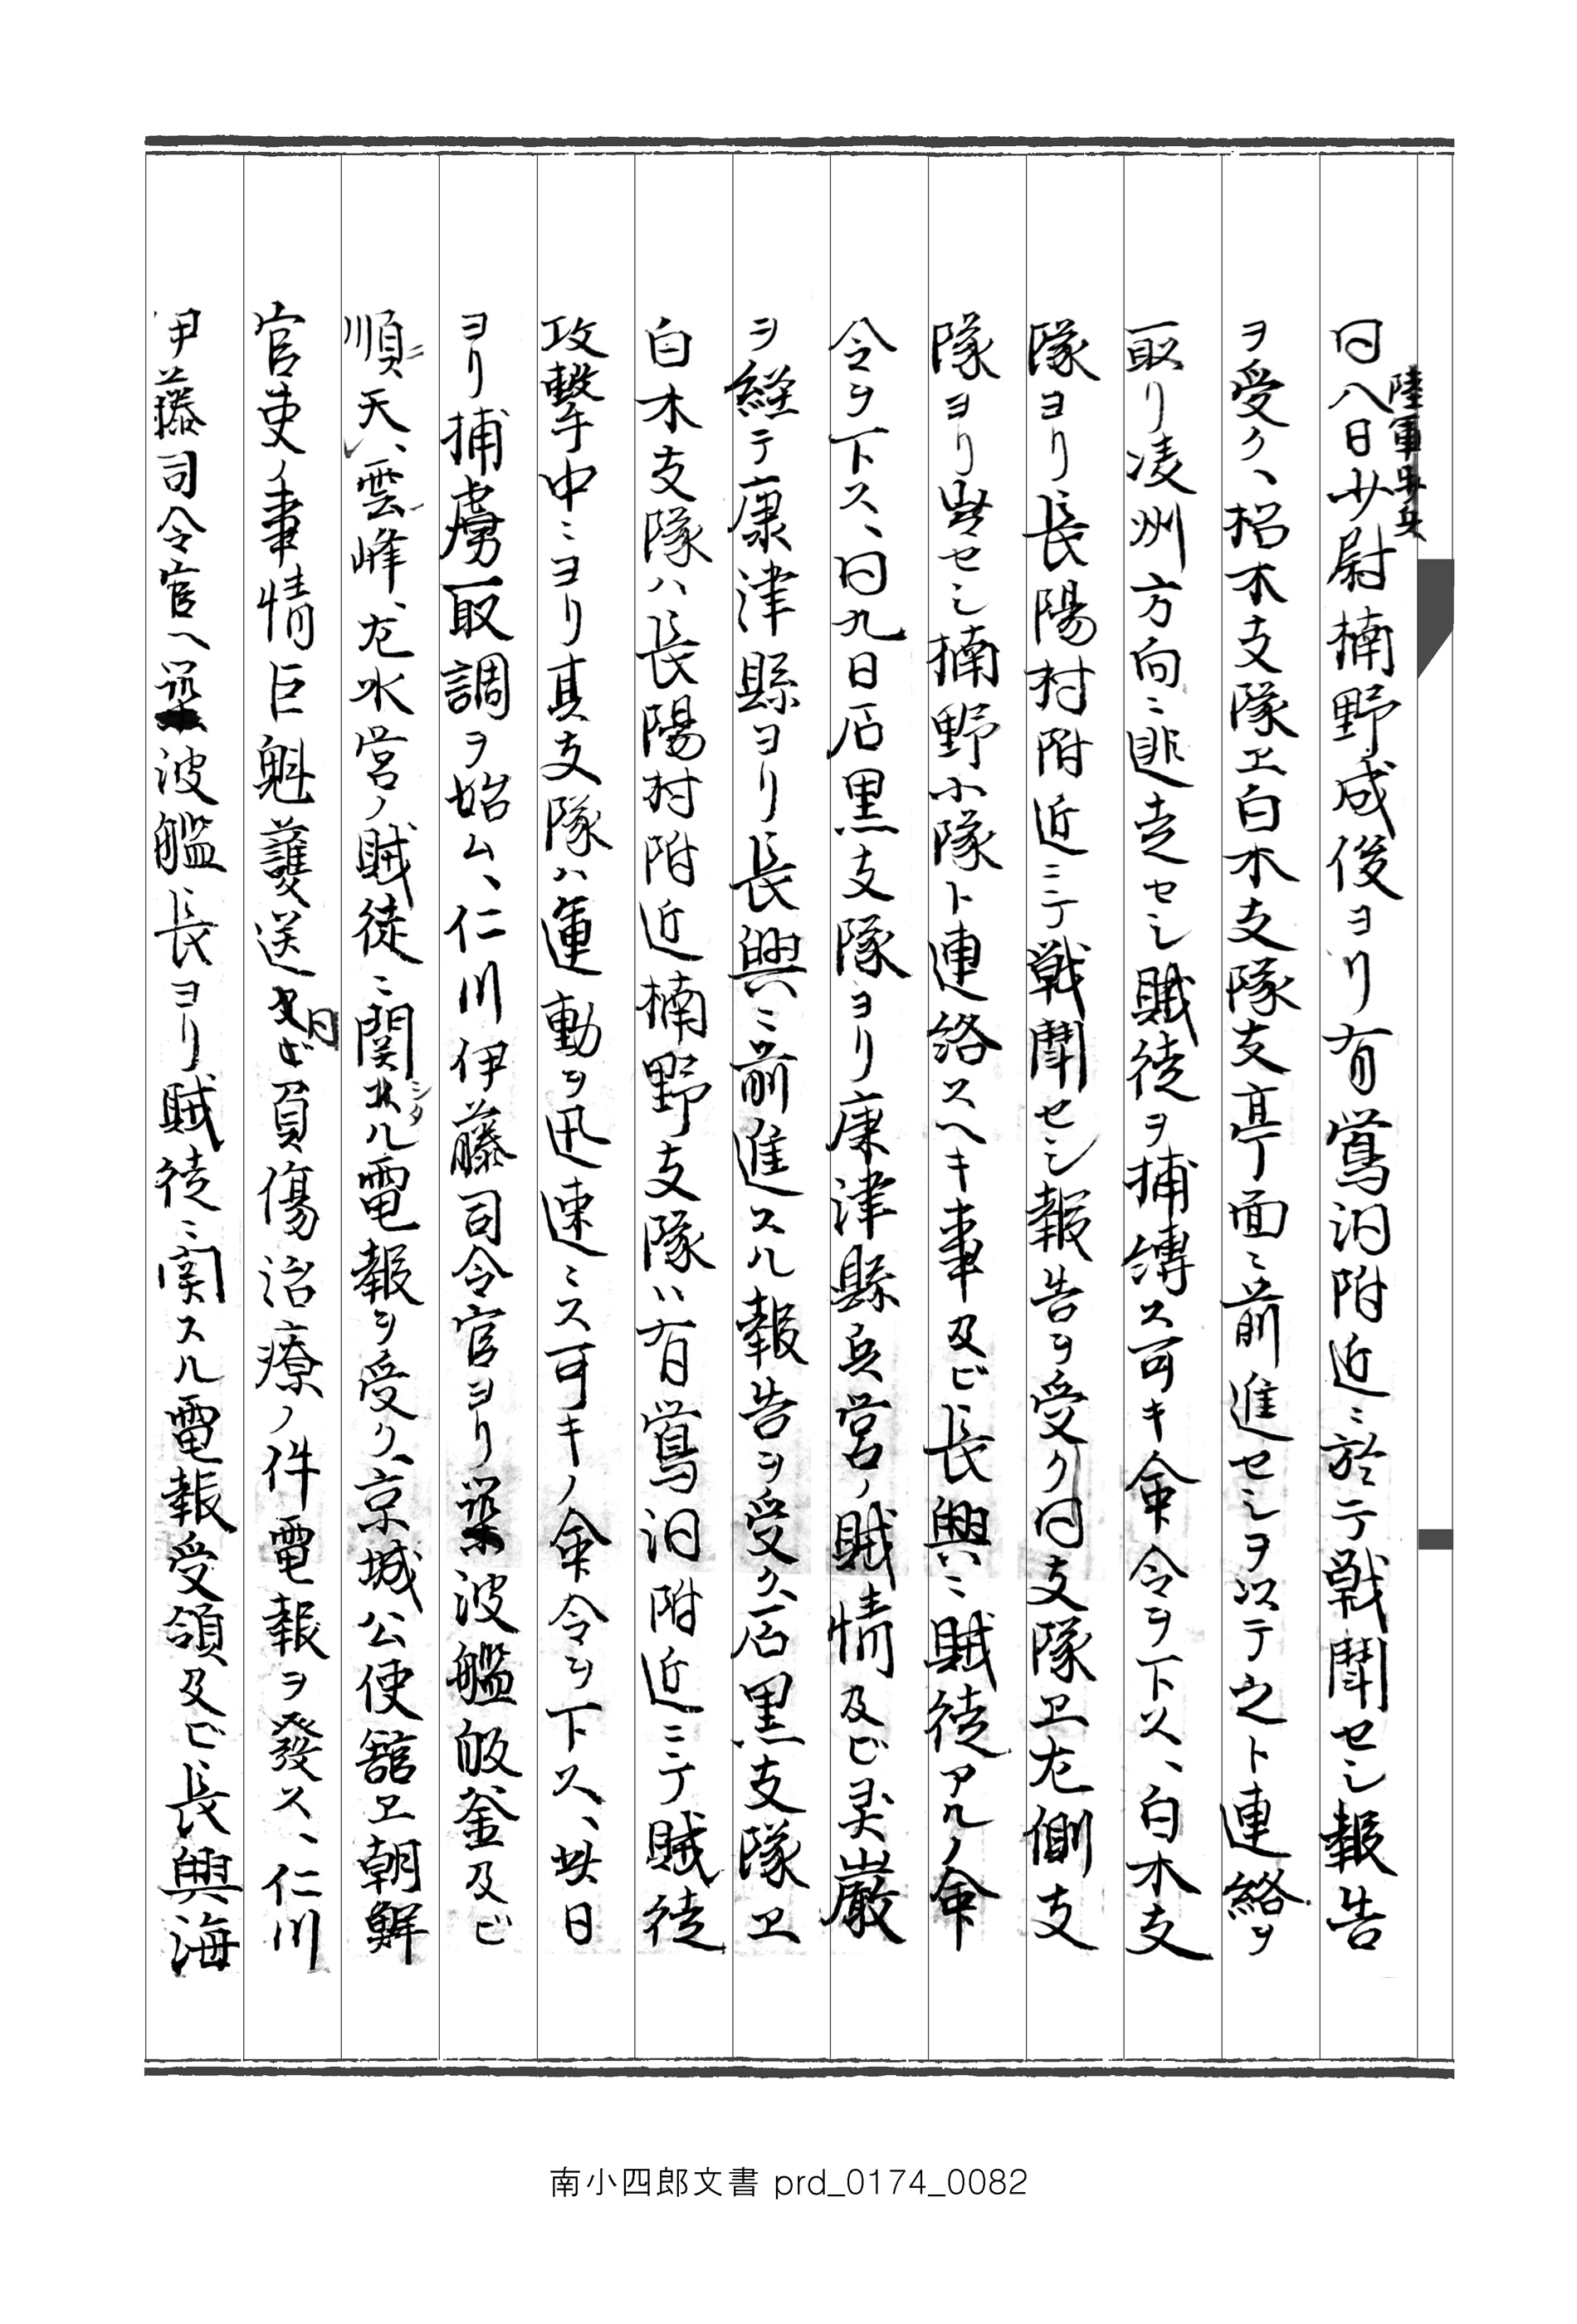 陸軍歩兵
同八日少尉楠野成俊ヨリ有鴬洞附近ニ於テ戦闘セシ報告
ヲ受ク、松木支隊ヱ白木支隊支亭面ニ前進セシヲ以テ之ト連絡ヲ
取リ凌州方向ニ遁走セシ賊徒ヲ捕縛ス可キ命令ヲ下ス、白木支
隊ヨリ長陽村附近ニテ戦闘セシ報告ヲ受ク同支隊ヱ左側支
隊ヨリ出セシ楠野小隊ト連絡スヘキ事及ビ長興ニ賊徒アルノ命
令ヲ下ス、同九日石黒支隊ヨリ康津縣兵営ノ賊情及ビ霊巌
ヲ経テ康津縣ヨリ長興ニ前進スル報告ヲ受ク石黒支隊ヱ
白木支隊ハ長陽村附近楠野支隊ハ有鴬洞附近ニテ賊徒
攻撃中ニヨリ其支隊ハ運動ヲ迅速ニス可キノ命令ヲ下ス、此日
ヨリ捕虜取調ヲ始ム、仁川伊藤司令官ヨリ築波艦皈釜及ビ
順天、雲峰、左水営ノ賊徒ニ関シタル電報ヲ受ク、京城公使舘ヱ朝鮮
官吏ノ事情巨魁護送及ビ負傷治療ノ件電報ヲ發ス、仁川
伊藤司令官ヘ築波艦長ヨリ賊徒ニ関スル電報受領及ビ長興海
南小四郎文書 prd_0174_0082